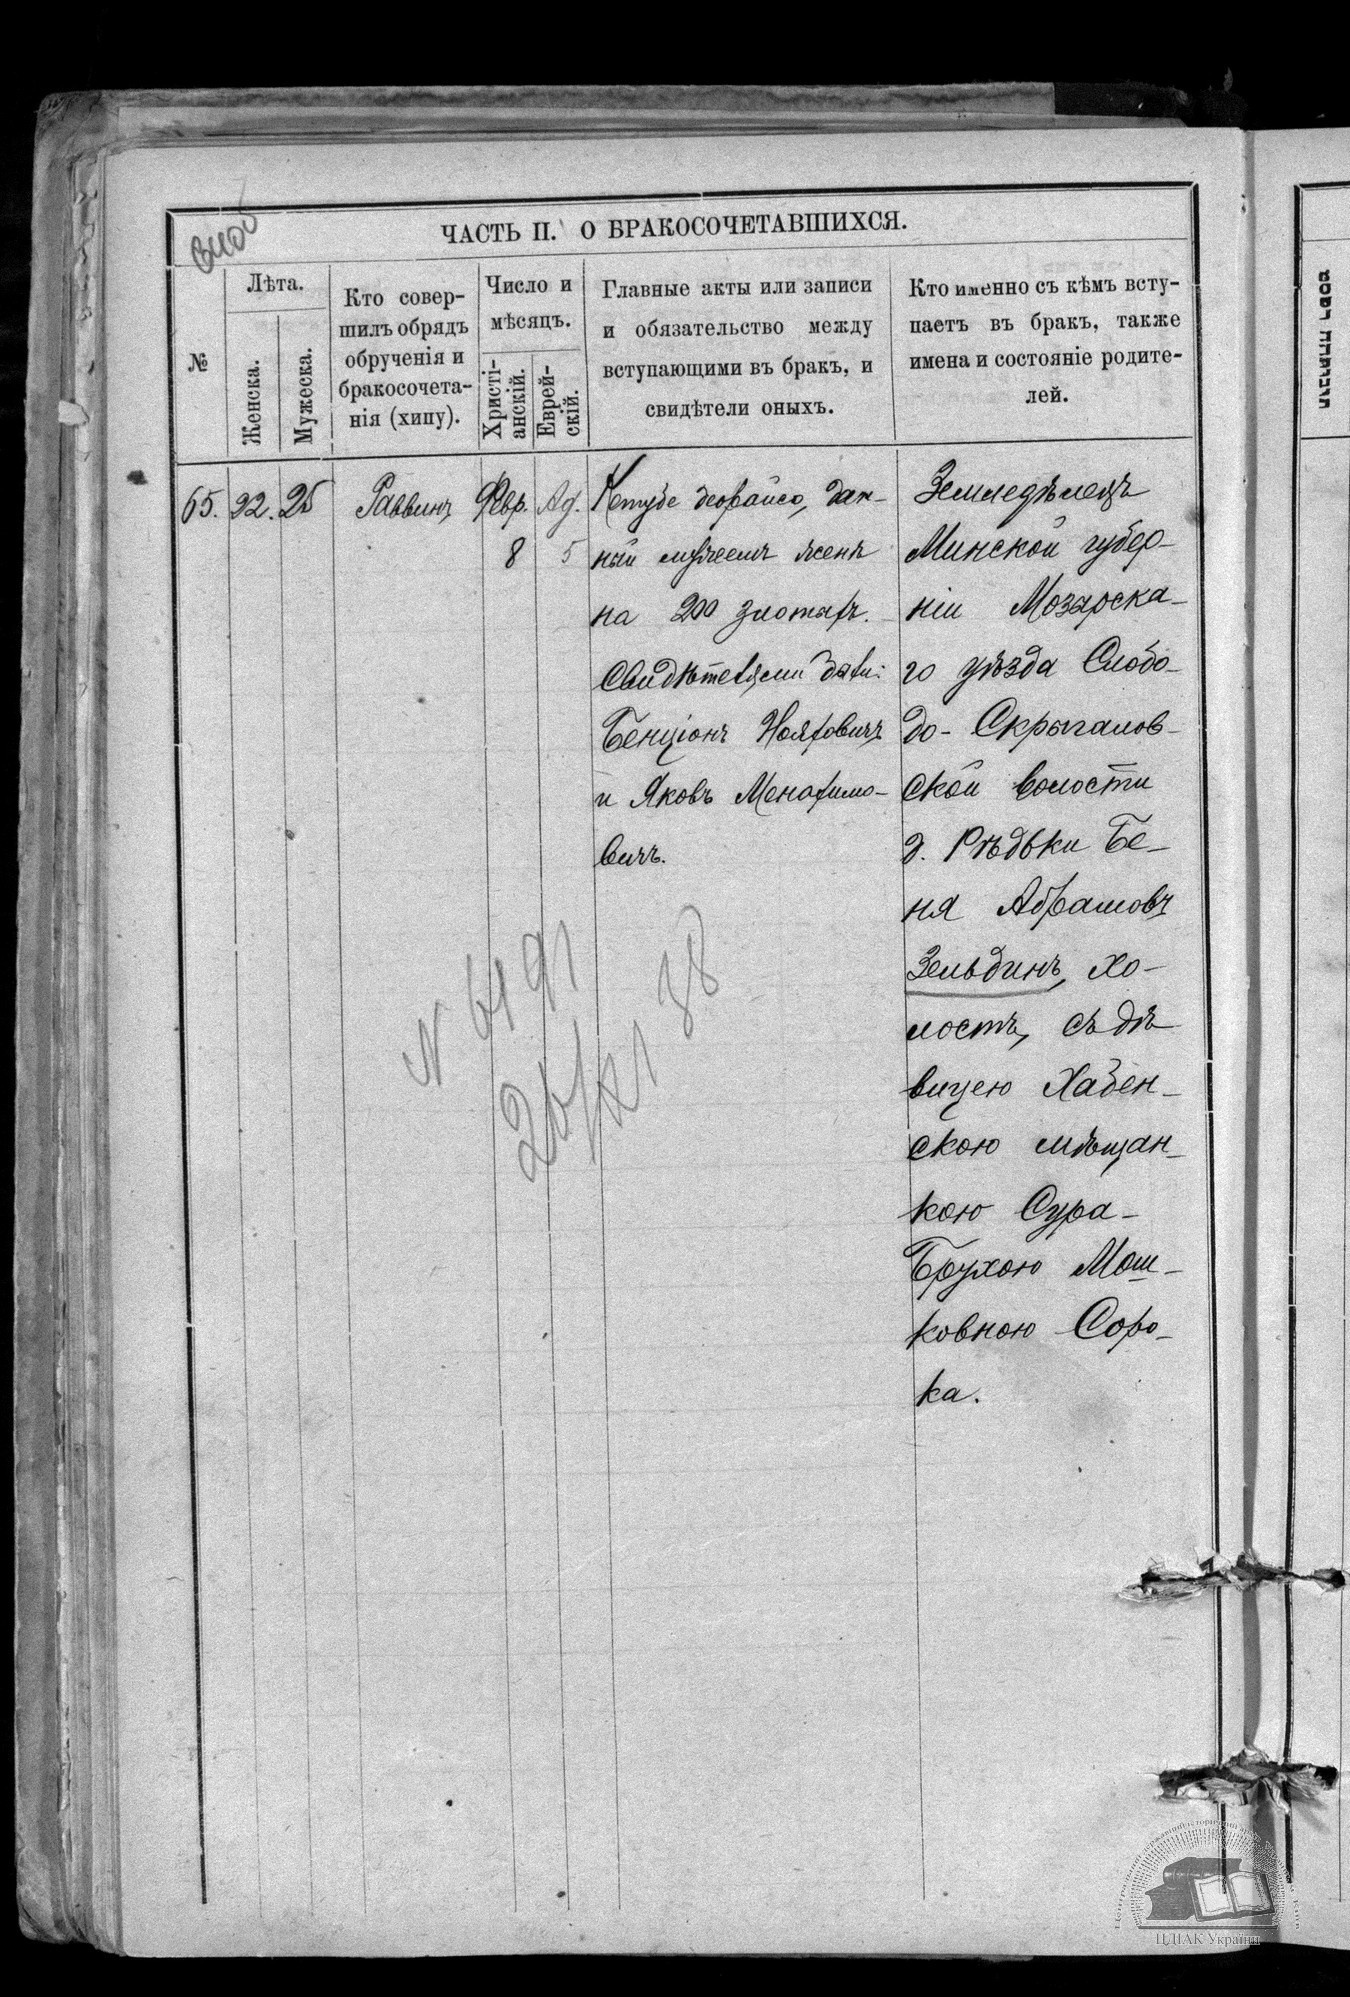 ЧАСТЬ II. О БРАКОСОЧЕТАВШИХСЯ.
№
Лѣта.
Женска.
Мужеска.
Кто совер-
шилъ обрядъ
обрученія и
бракосочета-
нія (хипу).
Число и
мѣсяцъ.
Христі-
анскій.
Еврей-
скій.
Главные акты или записи
и обязательство между
вступающими въ бракъ, и
свидѣтели оныхъ.
Кто именно съ кѣмъ всту-
паетъ въ бракъ, также
имена и состояніе родите-
лей.
65. 22. 25 Раввинъ Февр. Ад.
8 5
Кетубе деорайсо, дан-
ный мужемъ женѣ
на 200 злотыхъ.
Свидѣтелями были:
Бенціонъ Нояховичъ
и Яковъ Менахимо-
вичъ.
Земледѣлецъ
Минской губер-
ніи Мозырска-
го уѣзда Слобо-
до-Скрыгалов-
ской волости
д. Рѣдьки Бе-
ня Абрамовъ
Зельдинъ, хо-
лостъ, съ дѣ
вицею Хабен-
скою мѣщан-
кою Сура-
Брухою Мош-
ковною Соро-
ка.
N 6191
38
ЦДІАК України